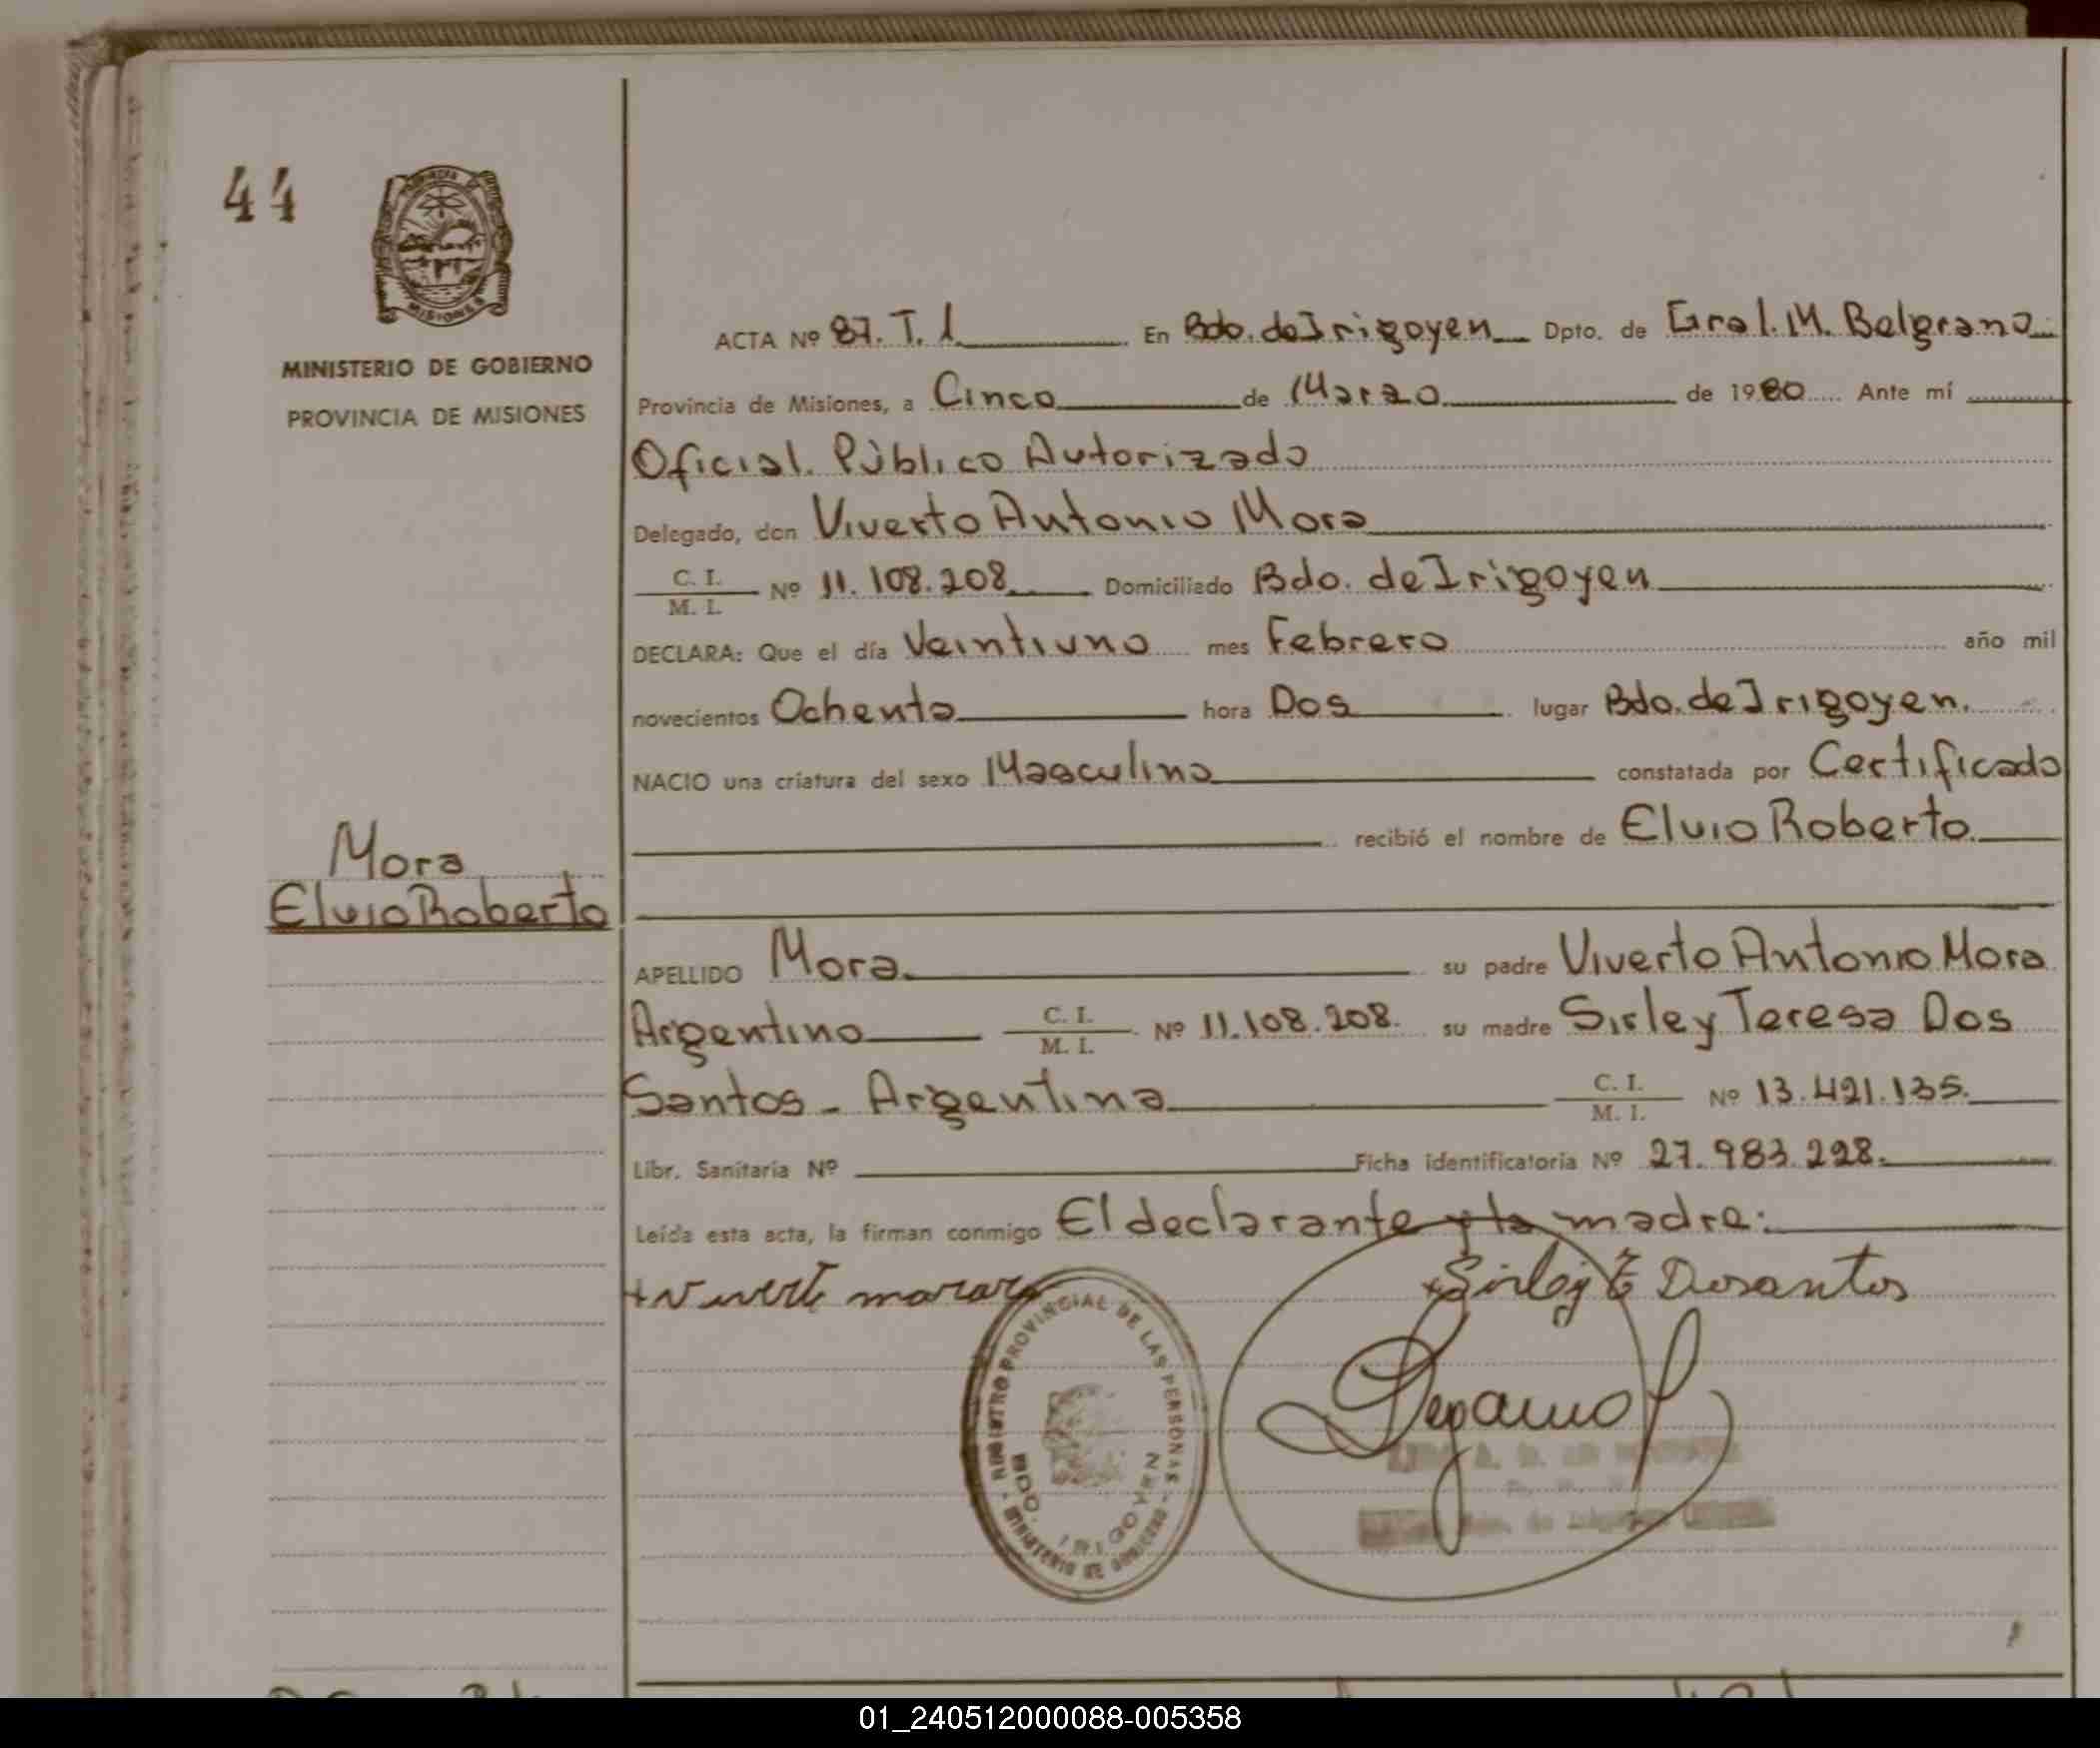 44
PROVINCIA DE
MISIONES
MINISTERIO DE GOBIERNO
PROVINCIA DE MISIONES
ACTA Nº 87. T. 1. En Bdo. de Irigoyen Dpto. de Gral. M. Belgrano
Provincia de Misiones, a Cinco de Marzo de 1980 Ante mí
Oficial. Público Autorizado
Delegado, don Viverto Antonio Mora
C. I.
M. I. Nº 11.108.208 Domiciliado Bdo. de Irigoyen
DECLARA: Que el día Veintiuno mes Febrero año mil
novecientos Ochenta hora Dos lugar Bdo. de Irigoyen.
NACIO una criatura del sexo Masculino constatada por Certificado
recibió el nombre de Elvio Roberto.
Mora
Elvio Roberto
APELLIDO Mora. su padre Viverto Antonio Mora
Argentino C. I.
M. I. Nº 11.108.208. su madre Sirley Teresa Dos
Santos - Argentina C. I.
M. I. Nº 13.421.135.
Libr. Sanitaria Nº Ficha identificatoria Nº 27.983.228.
Leída esta acta, la firman conmigo El declarante y la madre:
Sirley T Dosantos
REGISTRO PROVINCIAL DE LAS PERSONAS
MINISTERIO DE GOBIERNO
BDO. IRIGOYEN
01_240512000088-005358